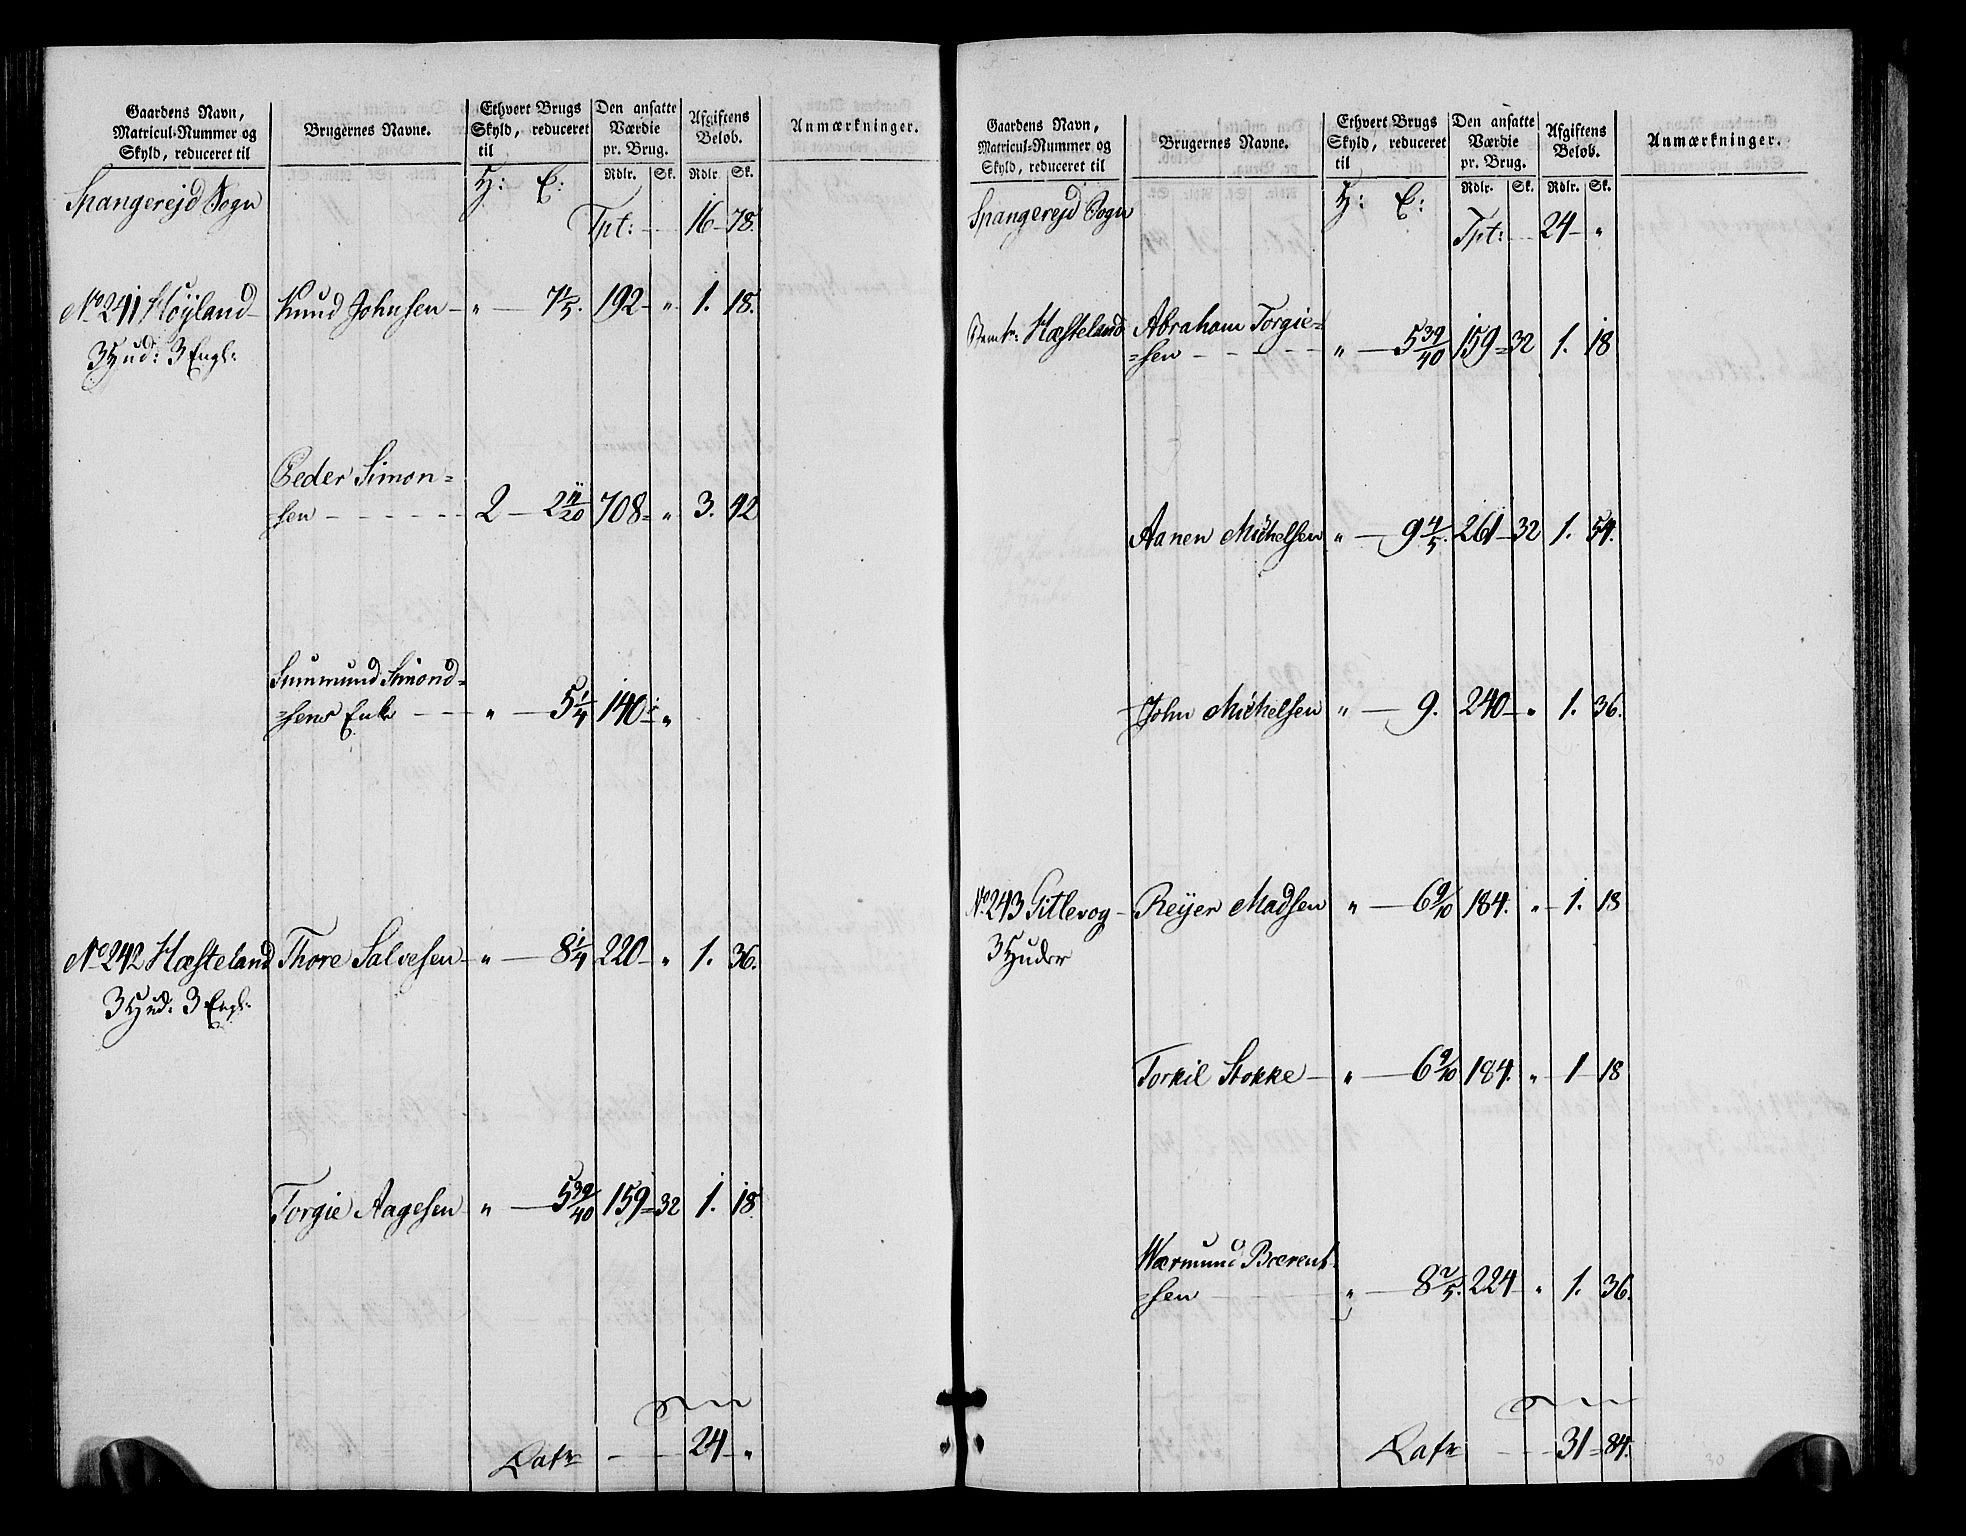 Gaardens Navn, Matricul-Nummer og Skyld, reduceret til
Brugernes Navne.
Ethvert Brugs Skyld, reduceret til
Den ansatte Værdie pr. Brug.
Afgiftens Beløb.
Anmærkninger.
Rdlr. Sk. Rdlr. Sk.
Spangerejd Sogn H: E:
Tpt: 16 - 78.
No 241 Høÿland - Knud Johnsen - " - 7 1/5. 192 - " 1. 18.
3 Hud: 3 Engl:
Peder Simon=
=sen - - - - - 2 - 2 11/20 708 - " 3. 42
Summund Simond=
=sens Enke - - " - 5 1/4 140 - "
No 242 Hæsteland Thore Salvesen - " - 8 1/4 220 - " 1. 36.
3 Hud: 3 Engl:
Torgie Aagesen " - 5 39/40 159 = 32 1. 18.
Latr - - 24 - "
Gaardens Navn, Matricul-Nummer og Skyld, reduceret til
Brugernes Navne.
Ethvert Brugs Skyld, reduceret til
Den ansatte Værdie pr. Brug.
Afgiftens Beløb.
Anmærkninger.
Rdlr. Sk. Rdlr. Sk.
Spangerejd Sogn H: E:
Tpt: 24 - "
Hæsteland Abraham Torgie=
=sen - - - - - " - 5 39/40 159 = 32 1. 18
Aanen Michelsen " - 9 4/5. 261 - 32 1. 54.
John Michelsen " - 9. 240 - " 1. 36.
No 243 Gitlevog - Reÿer Madsen " - 6 9/10 184. " - 1. 18
3 Huder
Torkil Stokke - " - 6 9/10 184. " - 1 - 18
Wærmund Bærent=
=sen - - - " - 8 2/5. 224 - " 1. 36.
Latr - - - 31 = 84.
30